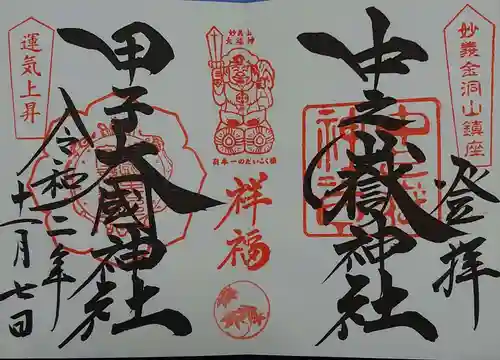 妙義金洞山鎮座
登拝
中之嶽神社
妙義山
大福神
日本一のだいこくい様
祥福
甲子大國神社
運気上昇
令和二年
十一月七日